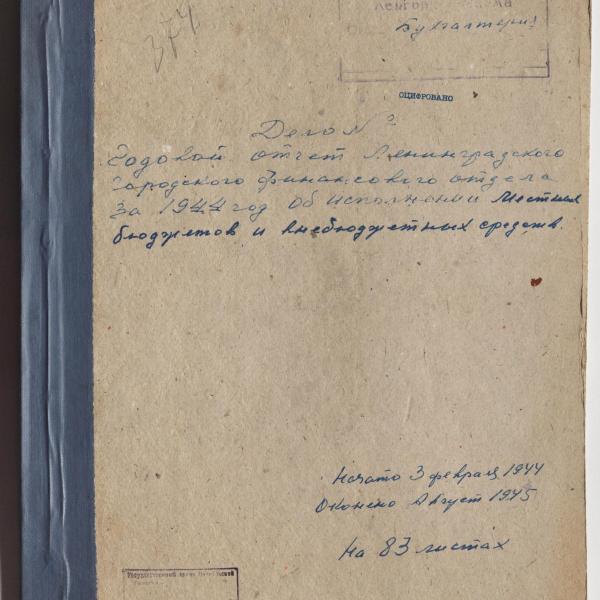 374
Бухгалтерия
ОЦИФРОВАНО
Дело №2
Годовой отчет Ленинградского
городского финансового отдела
за 1944 год об исполнении местных
бюджетов и внебюджетных средств.
Начато 3 февраля 1944
Окончено Август 1945
на 83 листах
Государственный Архив